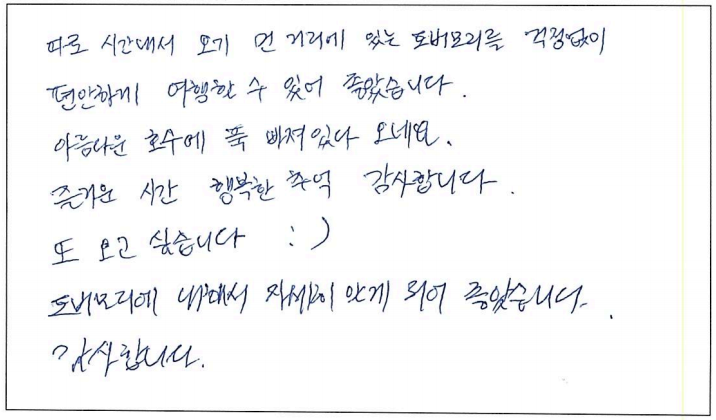 따로 시간내서 오기 먼 거리에 있는 토버모리를 걱정없이
편안하게 여행할 수 있어 좋았습니다.
아름다운 호수에 푹 빠져있다 오네요.
즐거운 시간 행복한 추억 감사합니다.
또 오고 싶습니다 :)
토버모리에 대해서 자세히 알게 되어 좋았습니다.
감사합니다.